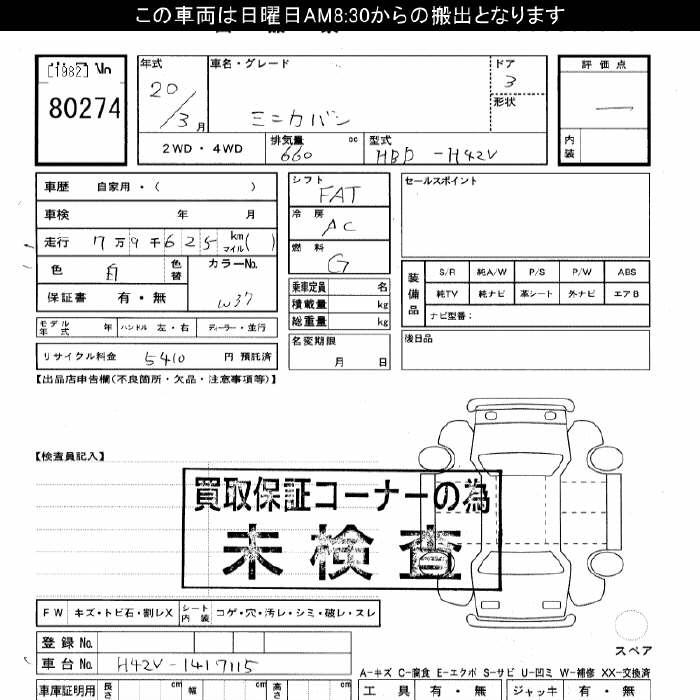 この車両は日曜日AM8:30からの搬出となります
[1982] Vn
80274
年式
20/3月
車名・グレード
ミニカバン
ドア
3
形状
評価点
—
内装
2WD・4WD
排気量
660 cc
型式
HBD-H42V
車歴 自家用・( )
車検 年 月
走行 7万9千625 km マイル( )
色 白 色替
カラーNo. W37
保証書 有・無
モデル年式 年 ハンドル 左・右 ディーラー・並行
リサイクル料金 5410 円 預託済
シフト FAT
冷房 AC
燃料 G
乗車定員 名
積載量 kg
総重量 kg
名変期限
月 日
セールスポイント
装備品
S/R 純A/W P/S P/W ABS
純TV 純ナビ 革シート 外ナビ エアB
ナビ型番:
後日品
【出品店申告欄(不良箇所・欠品・注意事項等)】
【検査員記入】
買取保証コーナーの為
未検査
FW キズ・トビ石・割レX シート内装 コゲ・穴・汚レ・シミ・破レ・スレ
登録No.
車台No. H42V-1417115
スペア
A-キズ C-腐食 E-エクボ S-サビ U-凹ミ W-補修 XX-交換済
車庫証明用 長さ cm 幅 cm 高さ cm
工具 有・無 ジャッキ 有・無